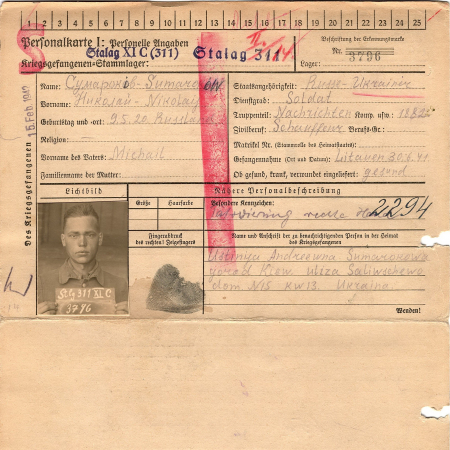 1 2 3 4 5 6 7 8 9 10 11 12 13 14 15 16 17 18 19 20 21 22 23 24 25
Personalkarte I: Personelle Angaben
Beschriftung der Erkennungsmarke
Stalag XI C (311) Stalag 311
Nr. 3796
Kriegsgefangenen-Stammlager:
Lager:
Des Kriegsgefangenen
15. Feb. 1942
Name: Сумароков-Sumarokow
Vorname: Николай-Nikolay
Geburtstag und -ort: 9.5.20 Russland
Religion:
Vorname des Vaters: Michail
Familienname der Mutter:
Staatsangehörigkeit: Russe-Ukrainer
Dienstgrad: Soldat
Truppenteil: Nachrichten Komp. usw.:
Zivilberuf: Berufs-Gr.:
Matrikel Nr. (Stammrolle des Heimatstaates):
Gefangennahme (Ort und Datum): Litauen 30.6.41
Ob gesund, krank, verwundet eingeliefert: gesund
Lichtbild
Nähere Personalbeschreibung
Größe
Haarfarbe
Besondere Kennzeichen:
2294
Fingerabdruck
des rechten! Zeigefingers
Name und Anschrift der zu benachrichtigenden Person in der Heimat
des Kriegsgefangenen
Andreewna Sumarokowa
gorod Kiew uliza
dom N15 kw 13. Ukraina
Stlg 311 XI C
3796
Wenden!